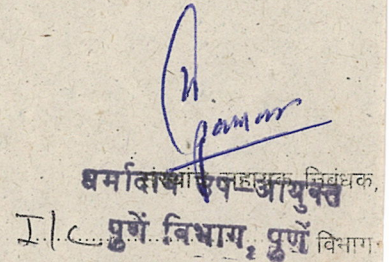 धर्मादाय उप-आयुक्त
सहायक निबंधक,
I/C पुणें विभाग, पुणें विभाग